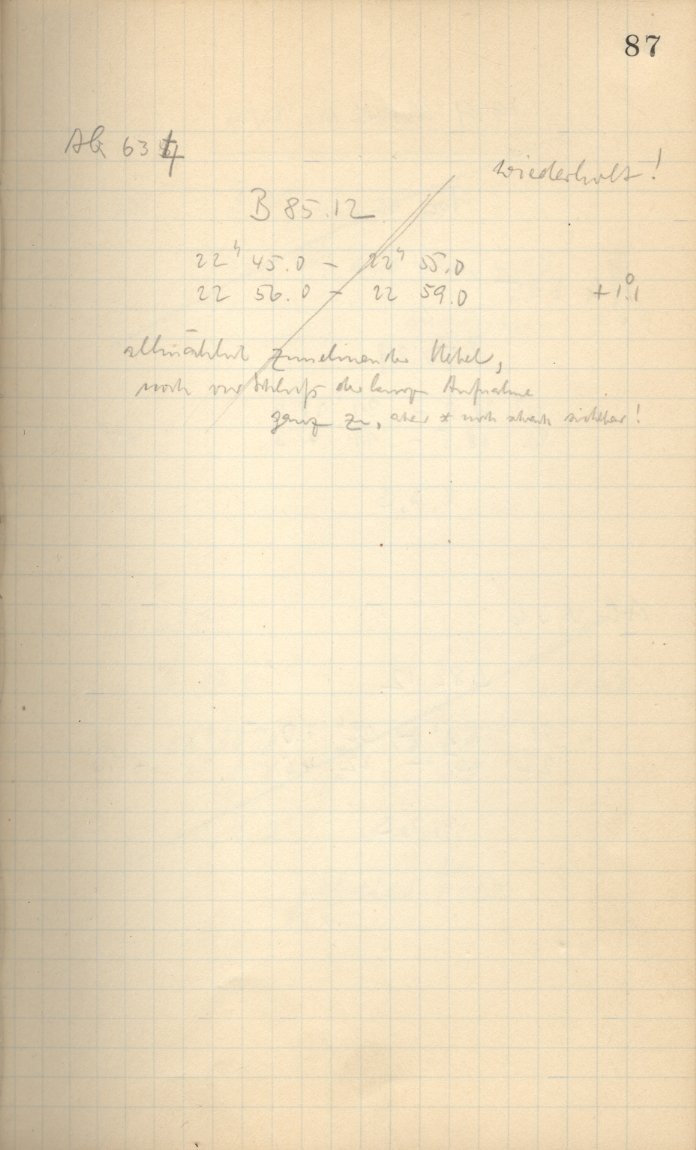 87
AG 6334
wiederholt!
B 85.12
22ʰ 45.0 – 22ʰ 55.0
22 56.0 – 22 59.0 +1.°1
allmählich zunehmender Nebel,
noch vor Schluß der langen Aufnahme
ganz zu, aber * noch schwach sichtbar!